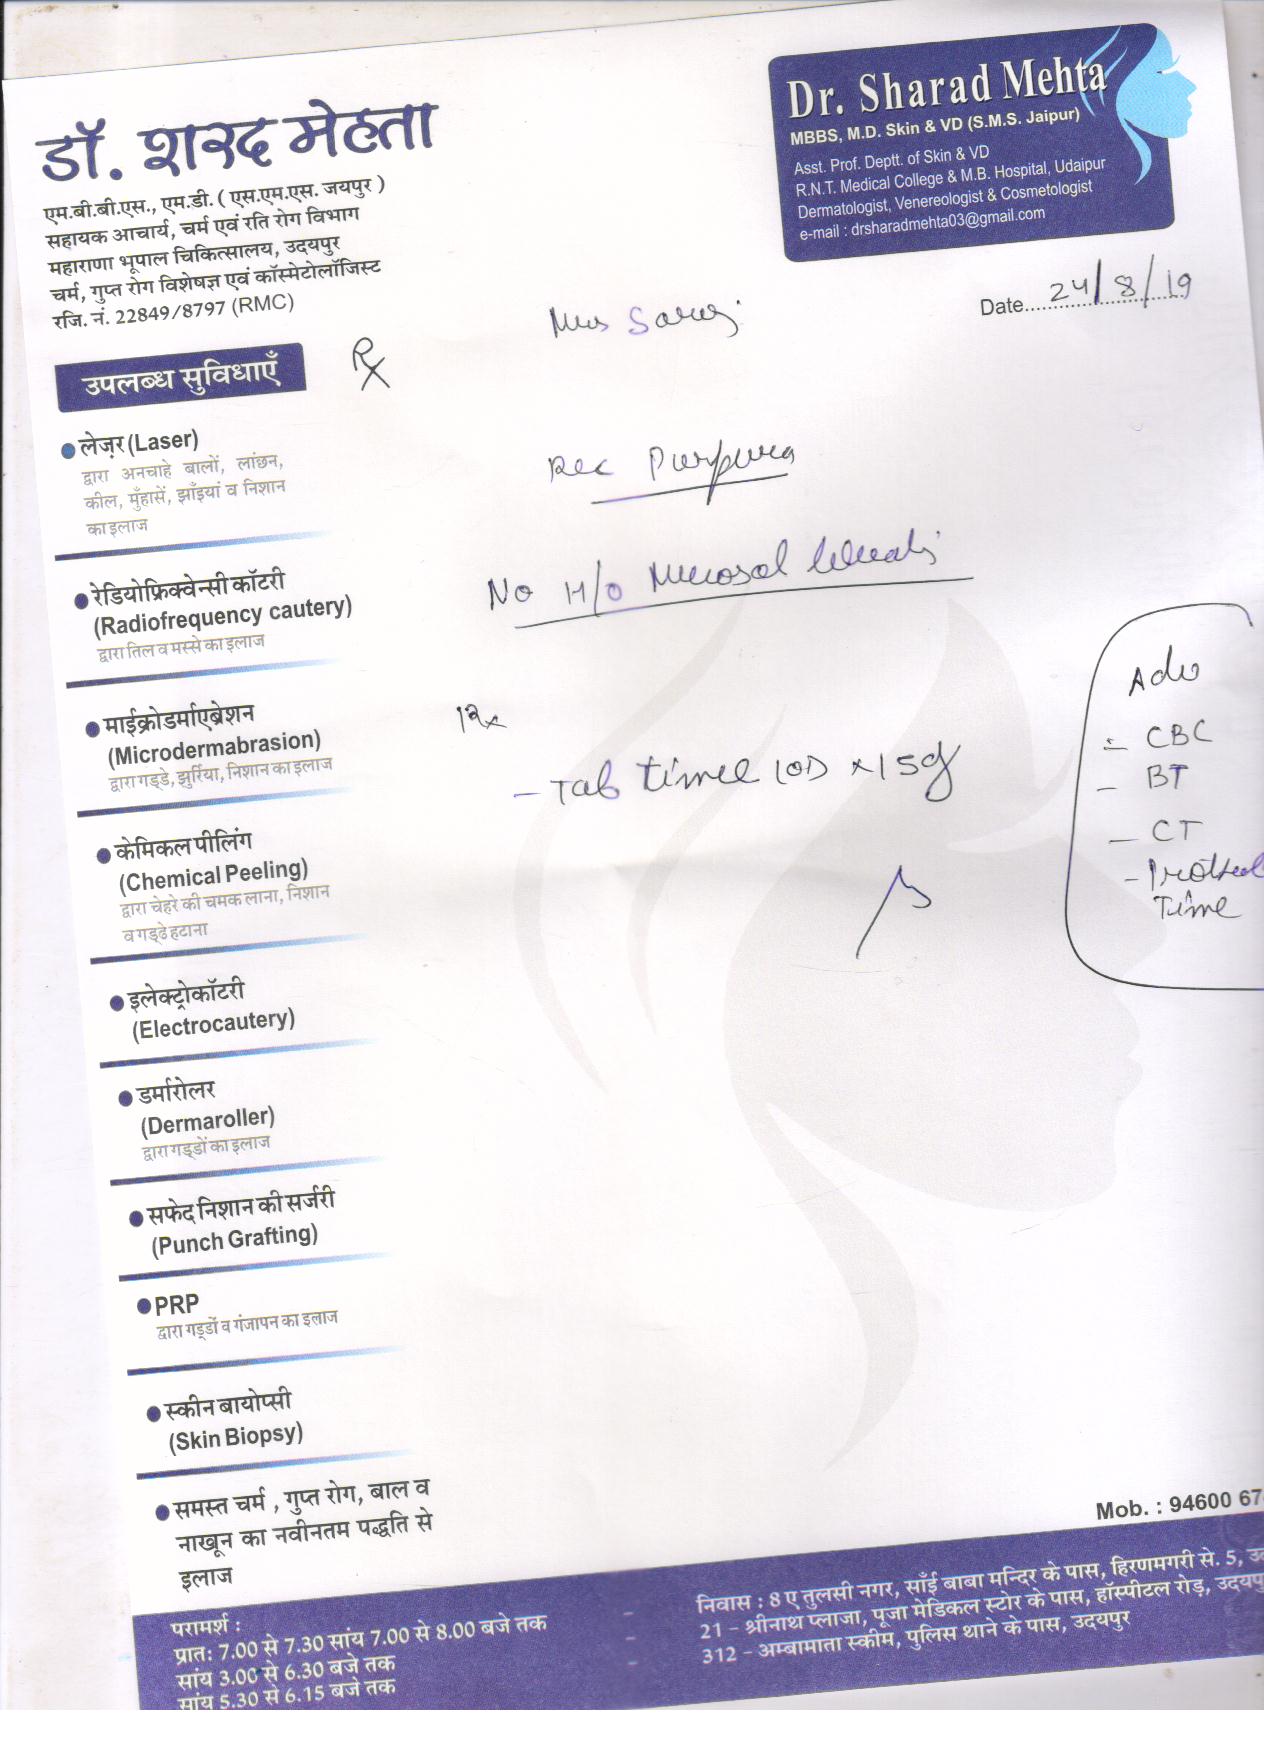 डॉ. शरद मेहता
एम.बी.बी.एस., एम.डी. ( एस.एम.एस. जयपुर )
सहायक आचार्य, चर्म एवं रति रोग विभाग
महाराणा भूपाल चिकित्सालय, उदयपुर
चर्म, गुप्त रोग विशेषज्ञ एवं कॉस्मेटोलॉजिस्ट
रजि. नं. 22849/8797 (RMC)
Dr. Sharad Mehta
MBBS, M.D. Skin & VD (S.M.S. Jaipur)
Asst. Prof. Deptt. of Skin & VD
R.N.T. Medical College & M.B. Hospital, Udaipur
Dermatologist, Venereologist & Cosmetologist
e-mail : drsharadmehta03@gmail.com
Date 24/8/19
Mrs Saroj
Rx
उपलब्ध सुविधाएँ
लेज़र (Laser)
द्वारा अनचाहे बालों, लांछन,
कील, मुँहासें, झाँइयां व निशान
का इलाज
रेडियोफ्रिक्वेन्सी कॉटरी
(Radiofrequency cautery)
द्वारा तिल व मस्से का इलाज
माईक्रोडर्माएब्रेशन
(Microdermabrasion)
द्वारा गड्डे, झुर्रिया, निशान का इलाज
केमिकल पीलिंग
(Chemical Peeling)
द्वारा चेहरे की चमक लाना, निशान
व गड्ढे हटाना
इलेक्ट्रोकॉटरी
(Electrocautery)
डर्मारोलर
(Dermaroller)
द्वारा गड्डों का इलाज
सफेद निशान की सर्जरी
(Punch Grafting)
PRP
द्वारा गड्डों व गंजापन का इलाज
स्कीन बायोप्सी
(Skin Biopsy)
समस्त चर्म , गुप्त रोग, बाल व
नाखून का नवीनतम पद्धति से
इलाज
Rec Purpura
No H/O Mucosal
Rx
- Tab 1OD x 15d
Adv
- CBC
- BT
- CT
- Time
Mob. : 94600 67
परामर्श :
प्रात: 7.00 से 7.30 सांय 7.00 से 8.00 बजे तक
सांय 3.00 से 6.30 बजे तक
सांय 5.30 से 6.15 बजे तक
निवास : 8 ए तुलसी नगर, साँई बाबा मन्दिर के पास, हिरणमगरी से. 5,
21 - श्रीनाथ प्लाजा, पूजा मेडिकल स्टोर के पास, हॉस्पीटल रोड़,
312 - अम्बामाता स्कीम, पुलिस थाने के पास, उदयपुर